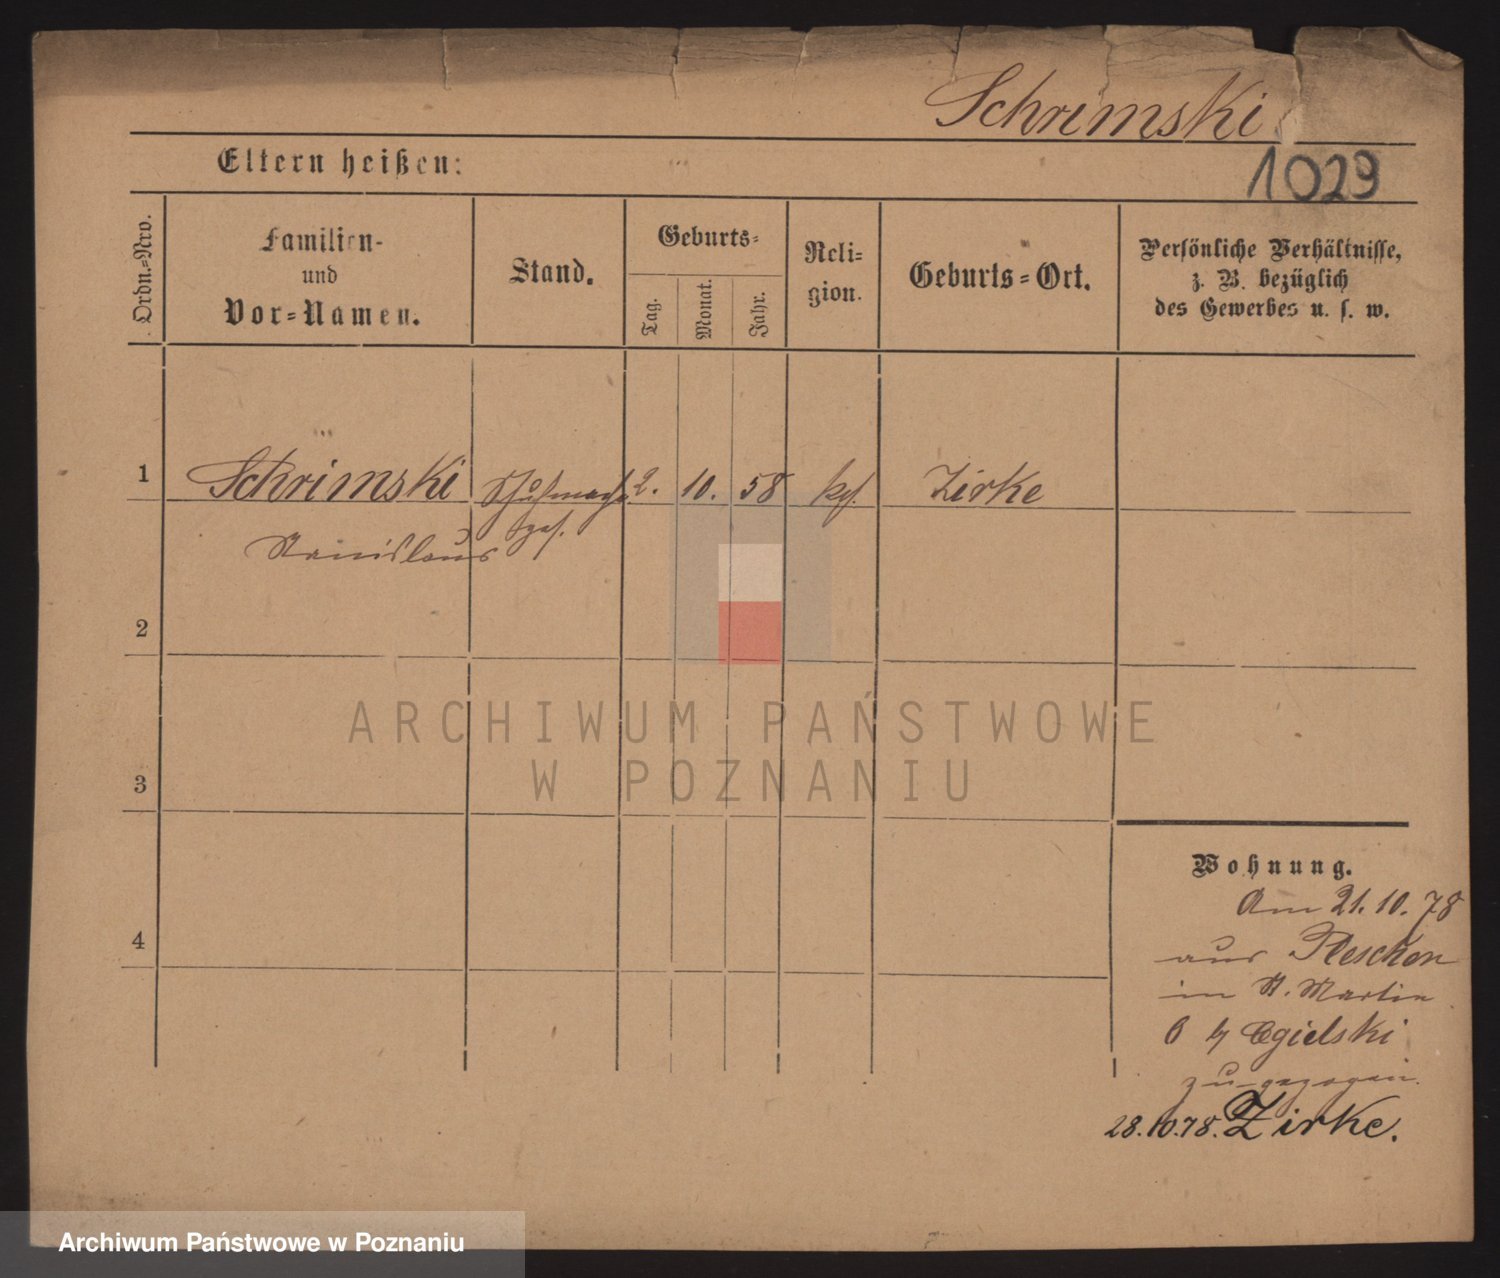 Schrimski
1029
Eltern heißen:
Ordn.-Nro.
Familien-
und
Vor-Namen.
Stand.
Geburts-
Tag.
Monat.
Jahr.
Reli-
gion.
Geburts-Ort.
Persönliche Verhältnisse,
z. B. bezüglich
des Gewerbes u. s. w.
1
Schrimski
Schuhmach
2.
10.
58
kt.
Zirke
Stanislaus
ges.
2
ARCHIWUM PAŃSTWOWE
W POZNANIU
3
Wohnung.
Am 21.10.78
aus Pleschen
in St. Martin
6 b/ Cgielski
zugezogen.
28.10.78. Zirke.
4
Archiwum Państwowe w Poznaniu